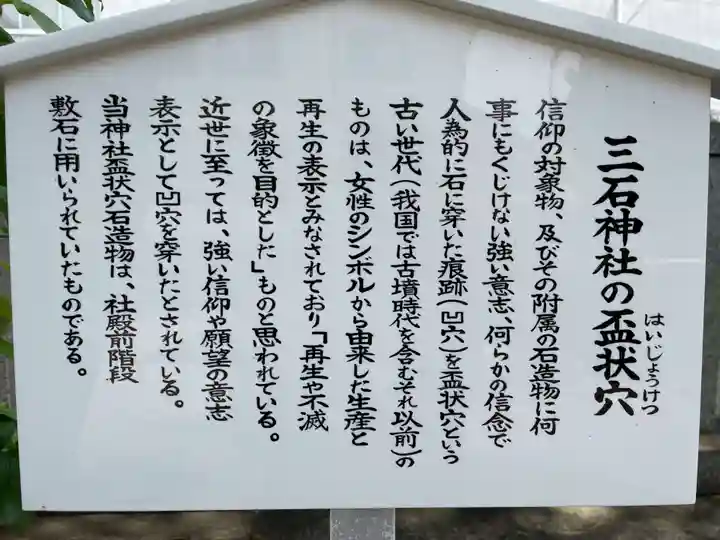 三石神社の盃状穴
はいじょうけつ
信仰の対象物、及びその附属の石造物に何
事にもくじけない強い意志、何らかの信念で
人為的に石に穿いた痕跡(凹穴)を盃状穴という
古い世代(我国では古墳時代を含むそれ以前)の
ものは、女性のシンボルから由来した生産と
再生の表示とみなされており「再生や不滅
の象徴を目的とした」ものと思われている。
近世に至っては、強い信仰や願望の意志
表示として凹穴を穿いたとされている。
当神社盃状穴石造物は、社殿前階段
敷石に用いられていたものである。